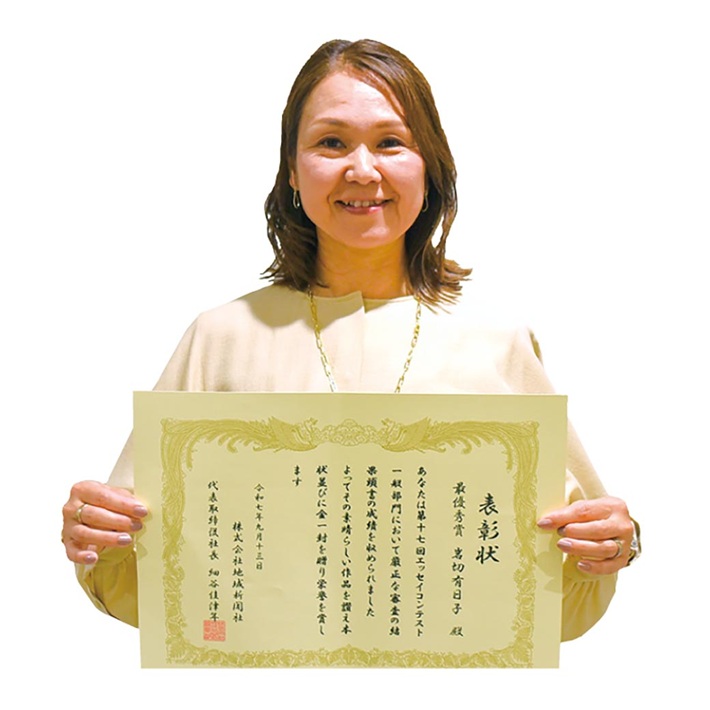 表彰状
最優秀賞 岩切有日子 殿
あなたは第十七回エッセイコンテスト
一般部門において厳正な審査の結
果頭書の成績を収められました
よってその素晴らしい作品を讃え本
状並びに金一封を贈り栄誉を賞し
ます
令和七年九月十三日
株式会社地域新聞社
代表取締役社長 細谷佳津年